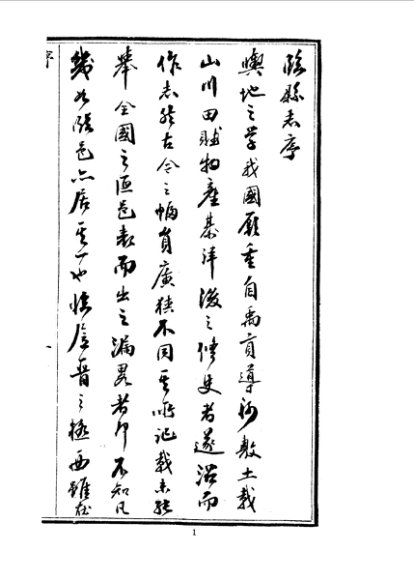 臨縣志序
輿地之學我國最重自禹貢導河敷土載
山川田賦物產綦詳後之修史者遂沿而
作志然古今之幅員廣狹不同其所記載未能
舉全國之區邑表而出之漏畧者卬不知凡
幾如臨邑亦居其一也臨居晉之極西雖在
序
1